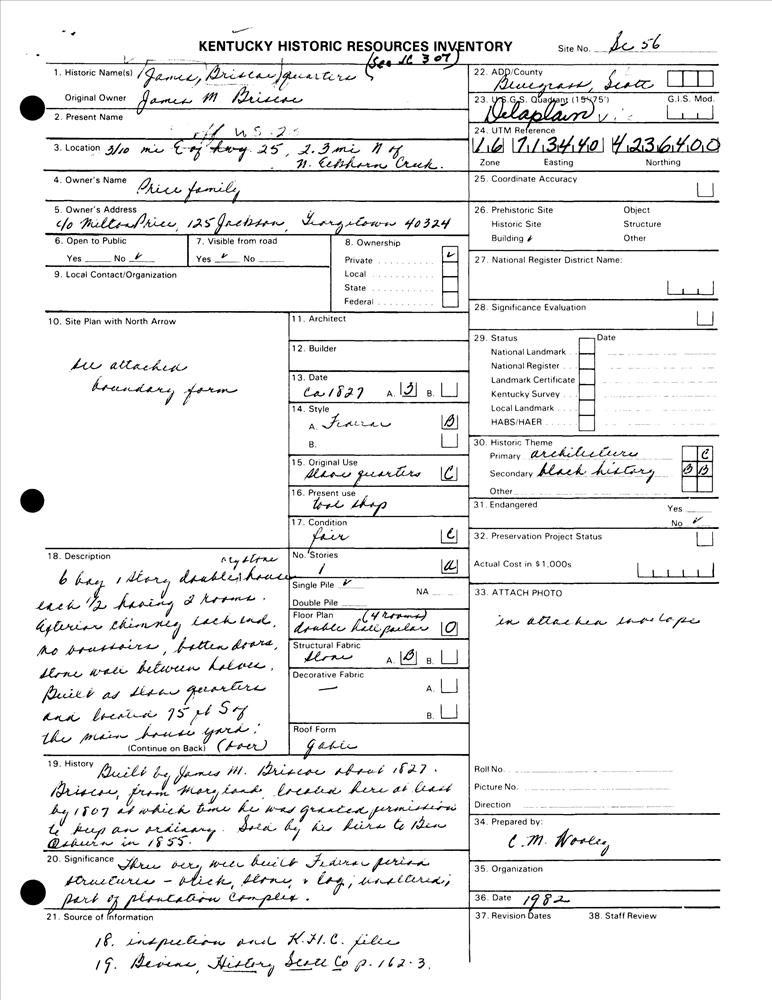 KENTUCKY HISTORIC RESOURCES INVENTORY
Site No. Sc 56
(See SC 307)
1. Historic Name(s) James, Briscoe, quarters
Original Owner James M Briscoe
2. Present Name
off US 25
3. Location 3/10 mi E of hwy. 25, 2.3 mi N of
N. Elkhorn Creek.
4. Owner's Name Price family
5. Owner's Address
c/o Milton Price, 125 Jackson, Georgetown 40324
6. Open to Public
Yes No ✓
7. Visible from road
Yes ✓ No
8. Ownership
Private ✓
Local
State
Federal
9. Local Contact/Organization
10. Site Plan with North Arrow
see attached
boundary form
11. Architect
12. Builder
13. Date
ca 1827 A. 3 B.
14. Style
A. Federal B
B.
15. Original Use
Slave quarters C
16. Present use
tool shop
17. Condition
fair C
18. Description
dry stone
6 bay 1 story double house
each 1/2 having 2 rooms.
Exterior chimney each end,
no voussoirs, batten doors,
stone wall between halves.
Built as slave quarters
and located 75 ft S of
the main house yard.
(Continue on Back) (over)
No. Stories
1 a
Single Pile ✓
NA
Double Pile
Floor Plan (4 rooms)
double hall parlor O
Structural Fabric
Stone A. B B.
Decorative Fabric
— A.
B.
Roof Form
gable
19. History Built by James M. Briscoe about 1827.
Briscoe, from Maryland, located here at least
by 1807 at which time he was granted permission
to keep an ordinary. Sold by his heirs to Ben
Osburn in 1855.
20. Significance Three very well built Federal period
structures - brick, stone, + log; unaltered;
part of plantation complex.
21. Source of Information
18. inspection and K.H.C. files
19. Bevins, History Scott Co p. 162-3.
22. ADD/County
Bluegrass, Scott
23. U.S.G.S. Quadrant (15'/75')
G.I.S. Mod.
Delaplain
24. UTM Reference
1 6 7 1 3 4 4 0 4 2 3 6 4 0 0
Zone Easting Northing
25. Coordinate Accuracy
26. Prehistoric Site Object
Historic Site Structure
Building ✓ Other
27. National Register District Name:
28. Significance Evaluation
29. Status Date
National Landmark
National Register
Landmark Certificate
Kentucky Survey
Local Landmark
HABS/HAER
30. Historic Theme
Primary architecture C
Secondary black history B B
Other
31. Endangered Yes
No ✓
32. Preservation Project Status
Actual Cost in $1,000s
33. ATTACH PHOTO
in attached envelope
Roll No.
Picture No.
Direction
34. Prepared by:
C. M. Wooley
35. Organization
36. Date 1982
37. Revision Dates 38. Staff Review